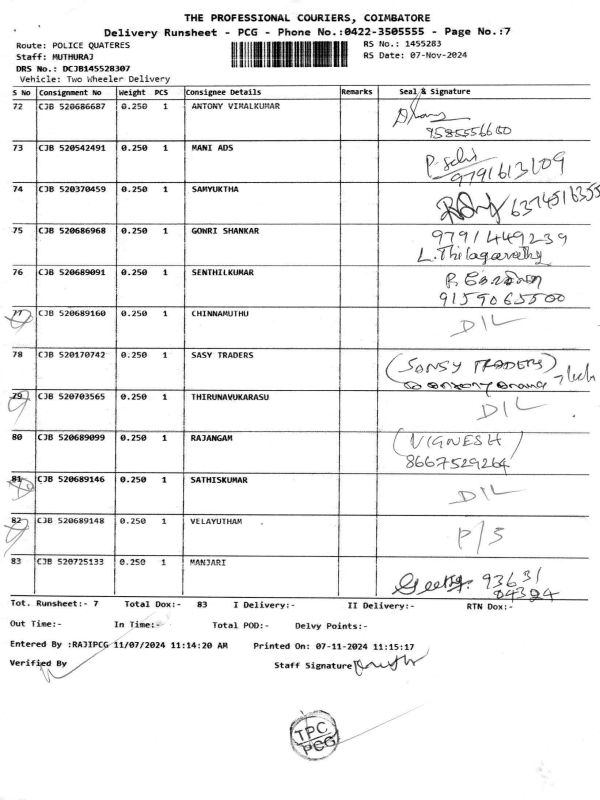 THE PROFESSIONAL COURIERS, COIMBATORE
Delivery Runsheet - PCG - Phone No.:0422-3505555 - Page No.:7
Route: POLICE QUATERES RS No.: 1455283
Staff: MUTHURAJ RS Date: 07-Nov-2024
DRS No.: DCJB145528307
Vehicle: Two Wheeler Delivery
S No Consignment No Weight PCS Consignee Details Remarks Seal & Signature
72 CJB 520686687 0.250 1 ANTONY VIMALKUMAR
9585556600
73 CJB 520542491 0.250 1 MANI ADS
9791613109
74 CJB 520370459 0.250 1 SAMYUKTHA
6374516355
75 CJB 520686968 0.250 1 GOWRI SHANKAR 9791449239
L. Thilagavathy
76 CJB 520689091 0.250 1 SENTHILKUMAR
9159065500
77 CJB 520689160 0.250 1 CHINNAMUTHU D/L
78 CJB 520170742 0.250 1 SASY TRADERS (SANSY TRADERS)
79 CJB 520703565 0.250 1 THIRUNAVUKARASU D/L
80 CJB 520689099 0.250 1 RAJANGAM (VIGNESH)
8667529264
81 CJB 520689146 0.250 1 SATHISKUMAR D/L
82 CJB 520689148 0.250 1 VELAYUTHAM P/S
83 CJB 520725133 0.250 1 MANJARI
Geetha 93631
84324
Tot. Runsheet:- 7 Total Dox:- 83 I Delivery:- II Delivery:- RTN Dox:-
Out Time:- In Time:- Total POD:- Delvy Points:-
Entered By :RAJIPCG 11/07/2024 11:14:20 AM Printed On: 07-11-2024 11:15:17
Verified By Staff Signature
TPC
PCG